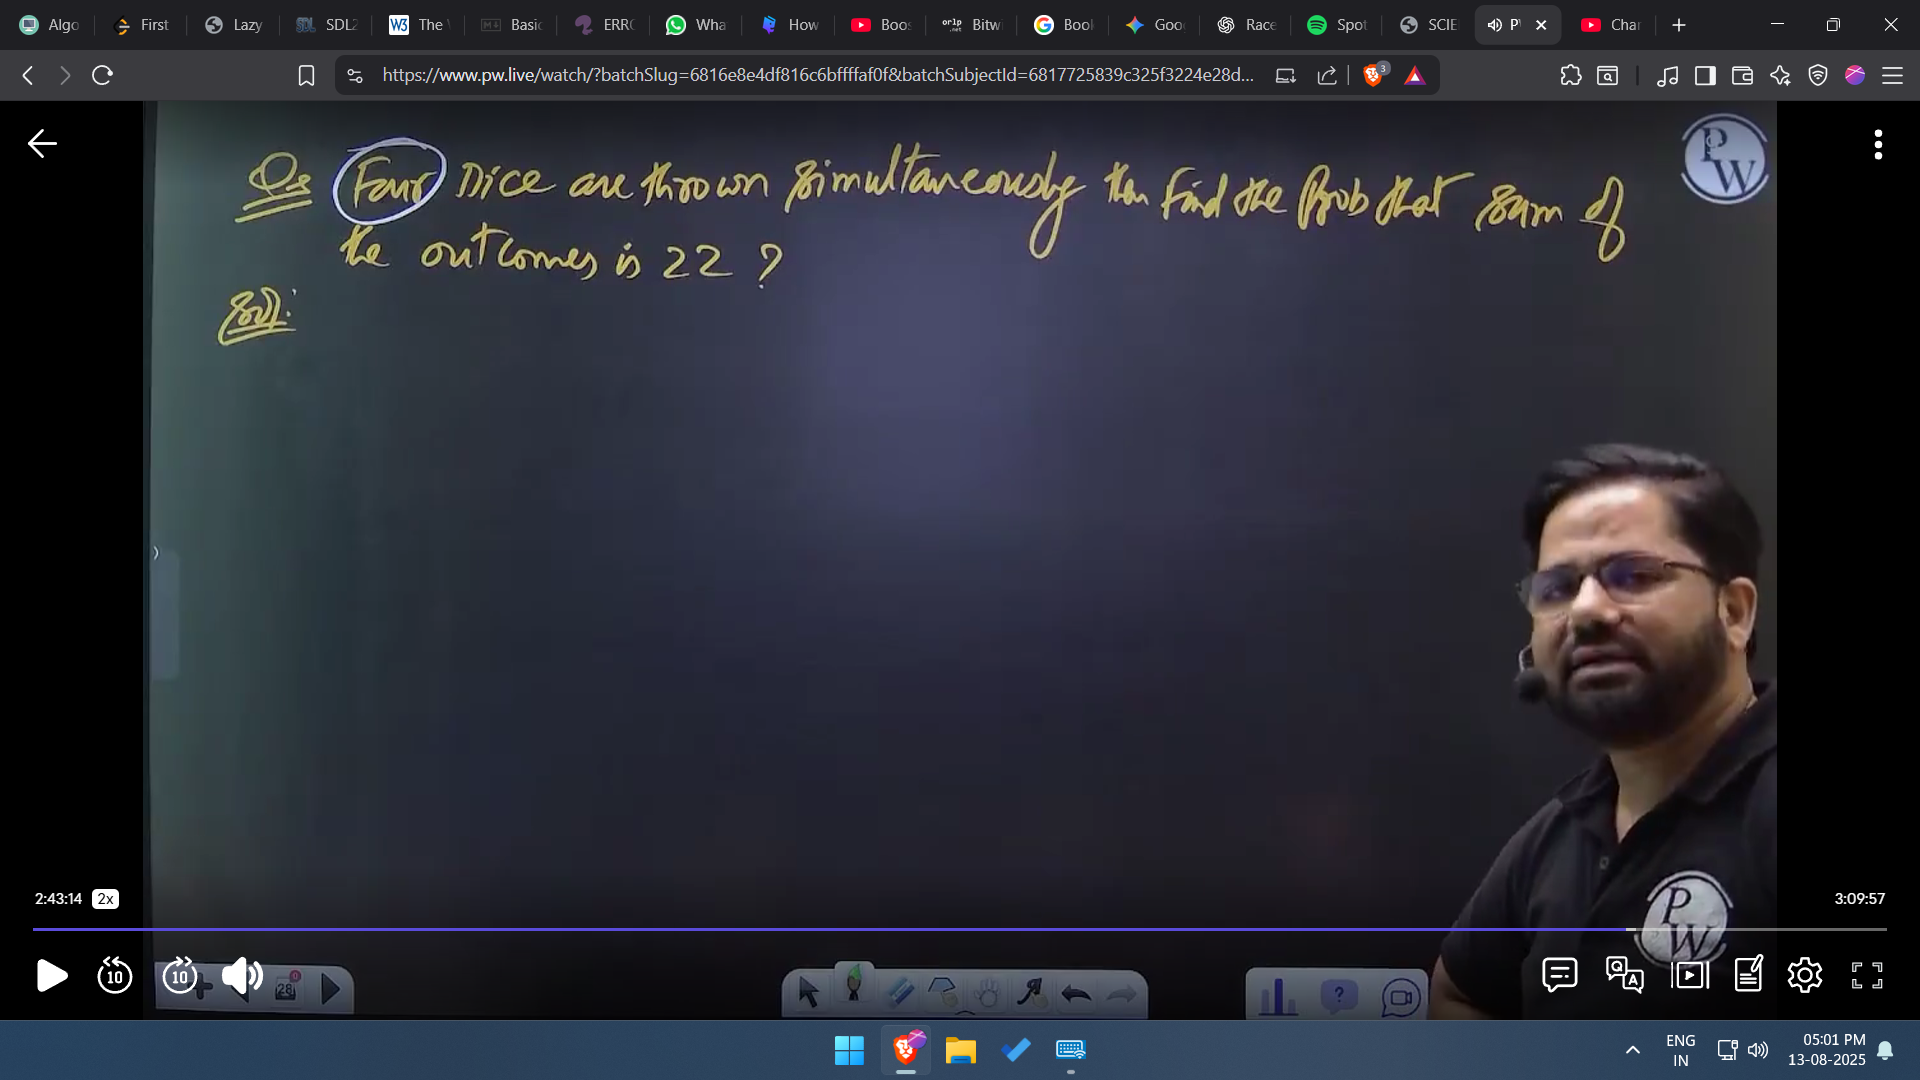 Algo
First
Lazy
SDL2
The
Basic
ERRO
Wha
How
Boos
Bitwi
Book
Goog
Race
Spot
SCIE
Char
https://www.pw.live/watch/?batchSlug=6816e8e4df816c6bffffaf0f&batchSubjectId=6817725839c325f3224e28d...
3
Qs Four Dice are thrown simultaneously then find the Prob that sum of
the outcomes is 22 ?
Sol:
PW
2:43:14 2x
3:09:57
PW
10
10
28
ENG
IN
05:01 PM
13-08-2025